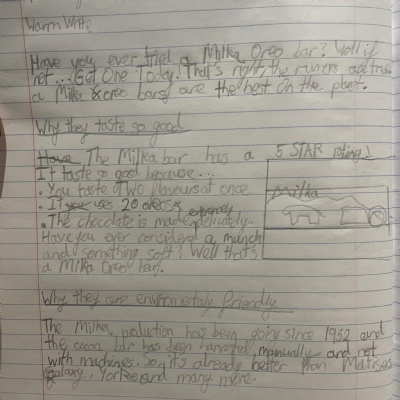 Warm Write
Have you ever tried a Milka Oreo bar? Well if
not... Get One Today. That's right, the
a Milka Oreo bars are the best on the planet.
Why they taste so good
Have The Milka bar has a 5 STAR rating!
It taste so good because...
• You taste TWO flavours at once
• It uses 20 oreos
• The chocolate is made extremely delicately
Have you ever considered a munch
and something soft? Well that's
a Milka Oreo bar.
milka
Why they are enviromentaly friendly
The Milka production has been going since 1952 and
the cocoa bar has been harvested manually and not
with machines. So it's already better than
Galaxy, Yorkie and many more.